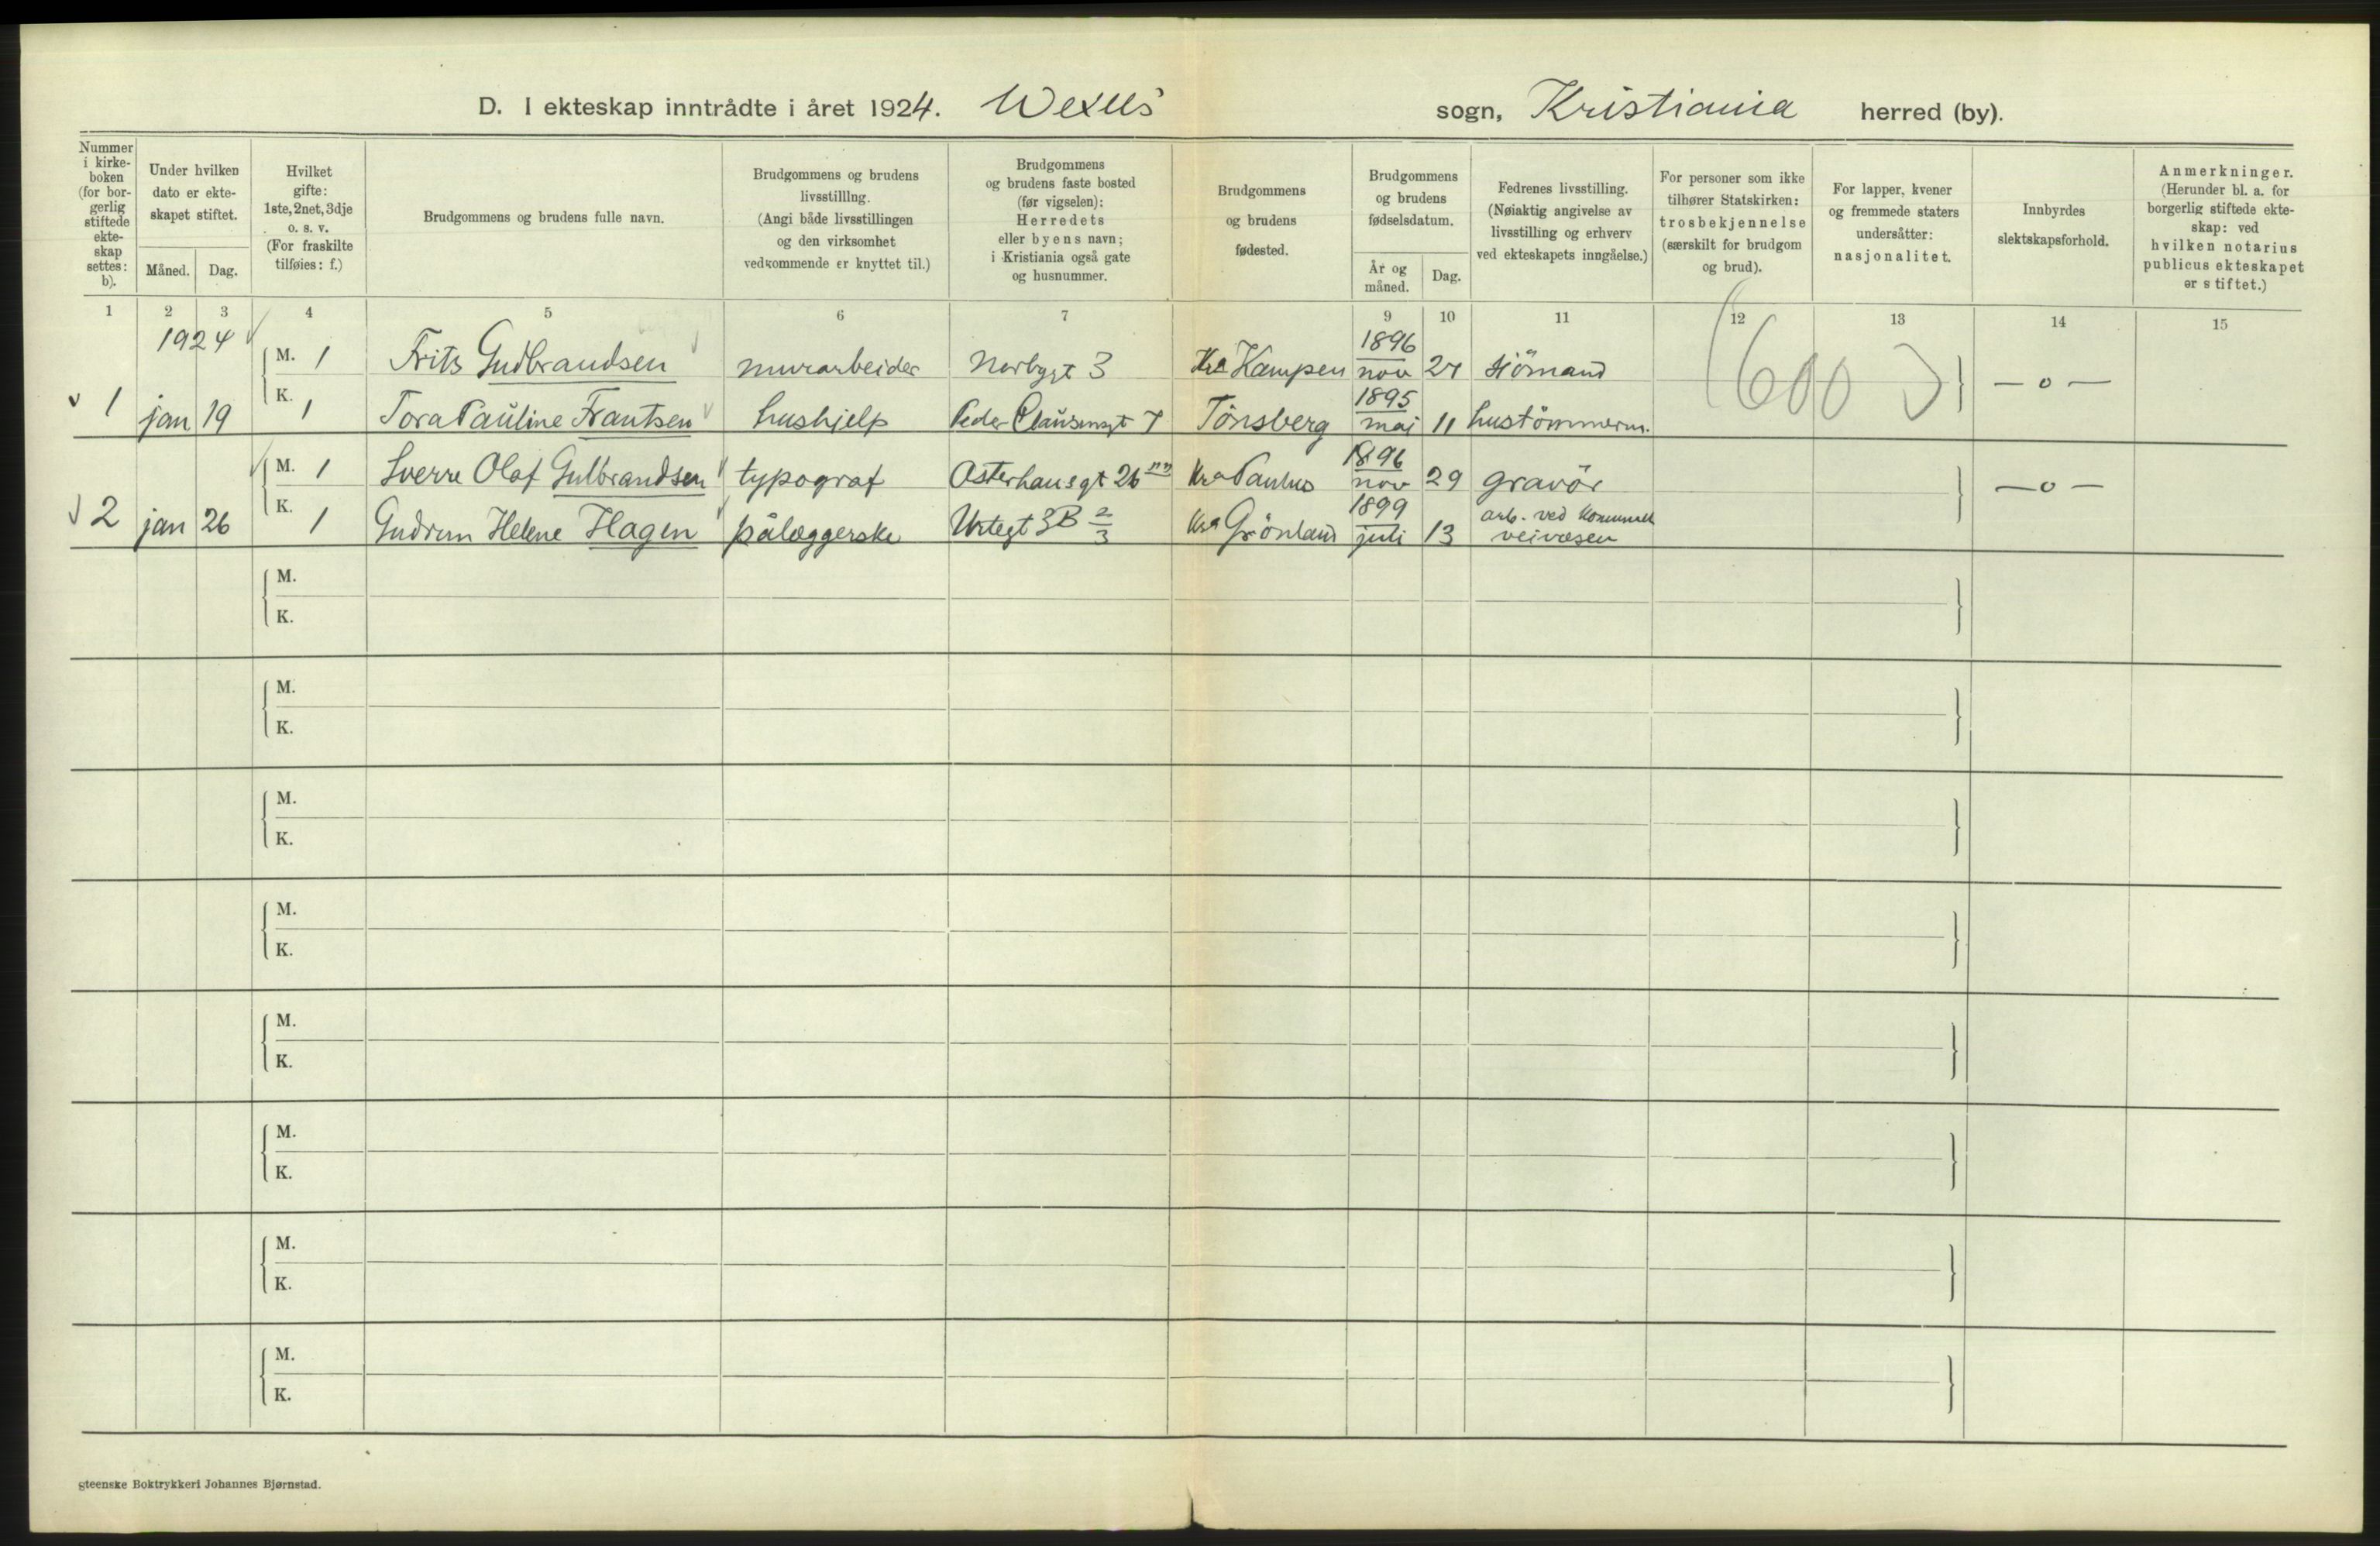 D. I ekteskap inntrådte i året 1924. Wexels sogn, Kristiania herred (by).
Nummer i kirke- boken (for bor- gerlig stiftede ekte- skap settes: b).
Under hvilken dato er ekte- skapet stiftet.
Måned. Dag.
Hvilket gifte: 1ste, 2net, 3dje o. s. v. (For fraskilte tilføies: f.)
Brudgommens og brudens fulle navn.
Brudgommens og brudens livsstillIng. (Angi både livsstillingen og den virksomhet vedkommende er knyttet til.)
Brudgommens og brudens faste bosted (før vigselen): Herredets eller byens navn; i Kristiania også gate og husnummer.
Brudgommens og brudens fødested.
Brudgommens og brudens fødselsdatum.
År og måned. Dag.
Fedrenes livsstilling. (Nøiaktig angivelse av livsstilling og erhverv ved ekteskapets inngåelse.)
For personer som ikke tilhører Statskirken: trosbekjennelse (særskilt for brudgom og brud).
For lapper, kvener og fremmede staters undersåtter: nasjonalitet.
Innbyrdes slektskapsforhold.
Anmerkninger. (Herunder bl. a. for borgerlig stiftede ekte- skap: ved hvilken notarius publicus ekteskapet er stiftet.)
1 2 3 4 5 6 7 9 10 11 12 13 14 15
1924
M. 1 Frits Gudbrandsen murarbeider Norbygt 3 Kra Kampen 1896 nov 27 sjömand
1 jan 19 K. 1 Tora Pauline Frantsen hushjelp Peder Clausensgt 7 Tönsberg 1895 mai 11 hustömmerm. — o —
(600)
M. 1 Sverre Olaf Gulbrandsen typograf Osterhausgt 26 Kra Paulus 1896 nov 29 gravör — o —
2 jan 26 K. 1 Gudrun Helene Hagen pålæggerske Urtegt 3B 2/3 Kra Grönland 1899 juli 13 arb. ved veivæsen
M.
K.
M.
K.
M.
K.
M.
K.
M.
K.
M.
K.
M.
K.
M.
K.
gteenske Boktrykkeri Johannes Bjørnstad.